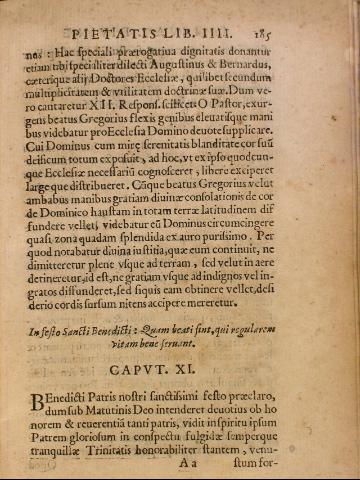 PIETATIS LIB. IIII. 185
nes: Hac speciali prærogatiua dignitatis donantur
etiam tibi specialiter dilecti Augustinus & Bernardus,
cæterique alij Doctores Ecclesiæ, quilibet secundum
multiplicitatem & vtilitatem doctrinæ suæ. Dum ve
ro cantaretur XII. Respons. scilicet: O Pastor, exur-
gens beatus Gregorius flexis genibus eleuatisque mani
bus videbatur pro Ecclesia Domino deuote supplicare.
Cui Dominus cum mire serenitatis blanditate cor suũ
deificum totum exposuit, ad hoc, vt ex ipso quodcun-
que Ecclesiæ necessariũ cognosceret, libere exciperet
large que distribueret. Cũque beatus Gregorius velut
ambabus manibus gratiam diuinæ consolationis de cor
de Dominico haustam in totam terræ latitudinem dif
fundere vellet, videbatur eũ Dominus circumcingere
quasi zona quadam splendida ex auro purissimo. Per
quod notabatur diuina iustitia, quæ eum continuit, ne
dimitteretur plene vsque ad terram, sed velut in aere
detineretur, id est, ne gratiam vsque ad indignos vel in-
gratos diffunderet, sed siquis eam obtinere vellet, desi
derio cordis sursum nitens accipere mereretur.
In festo Sancti Benedicti: Quam beati sint, qui regularem
vitam bene seruant.
CAPVT. XI.
Benedicti Patris nostri sanctissimi festo præclaro,
dum sub Matutinis Deo intenderet deuotius ob ho
norem & reuerentiã tanti patris, vidit in spiritu ipsum
Patrem gloriosum in conspectu fulgidæ semperque
tranquillæ Trinitatis honorabiliter stantem, venu-
A a stum for-